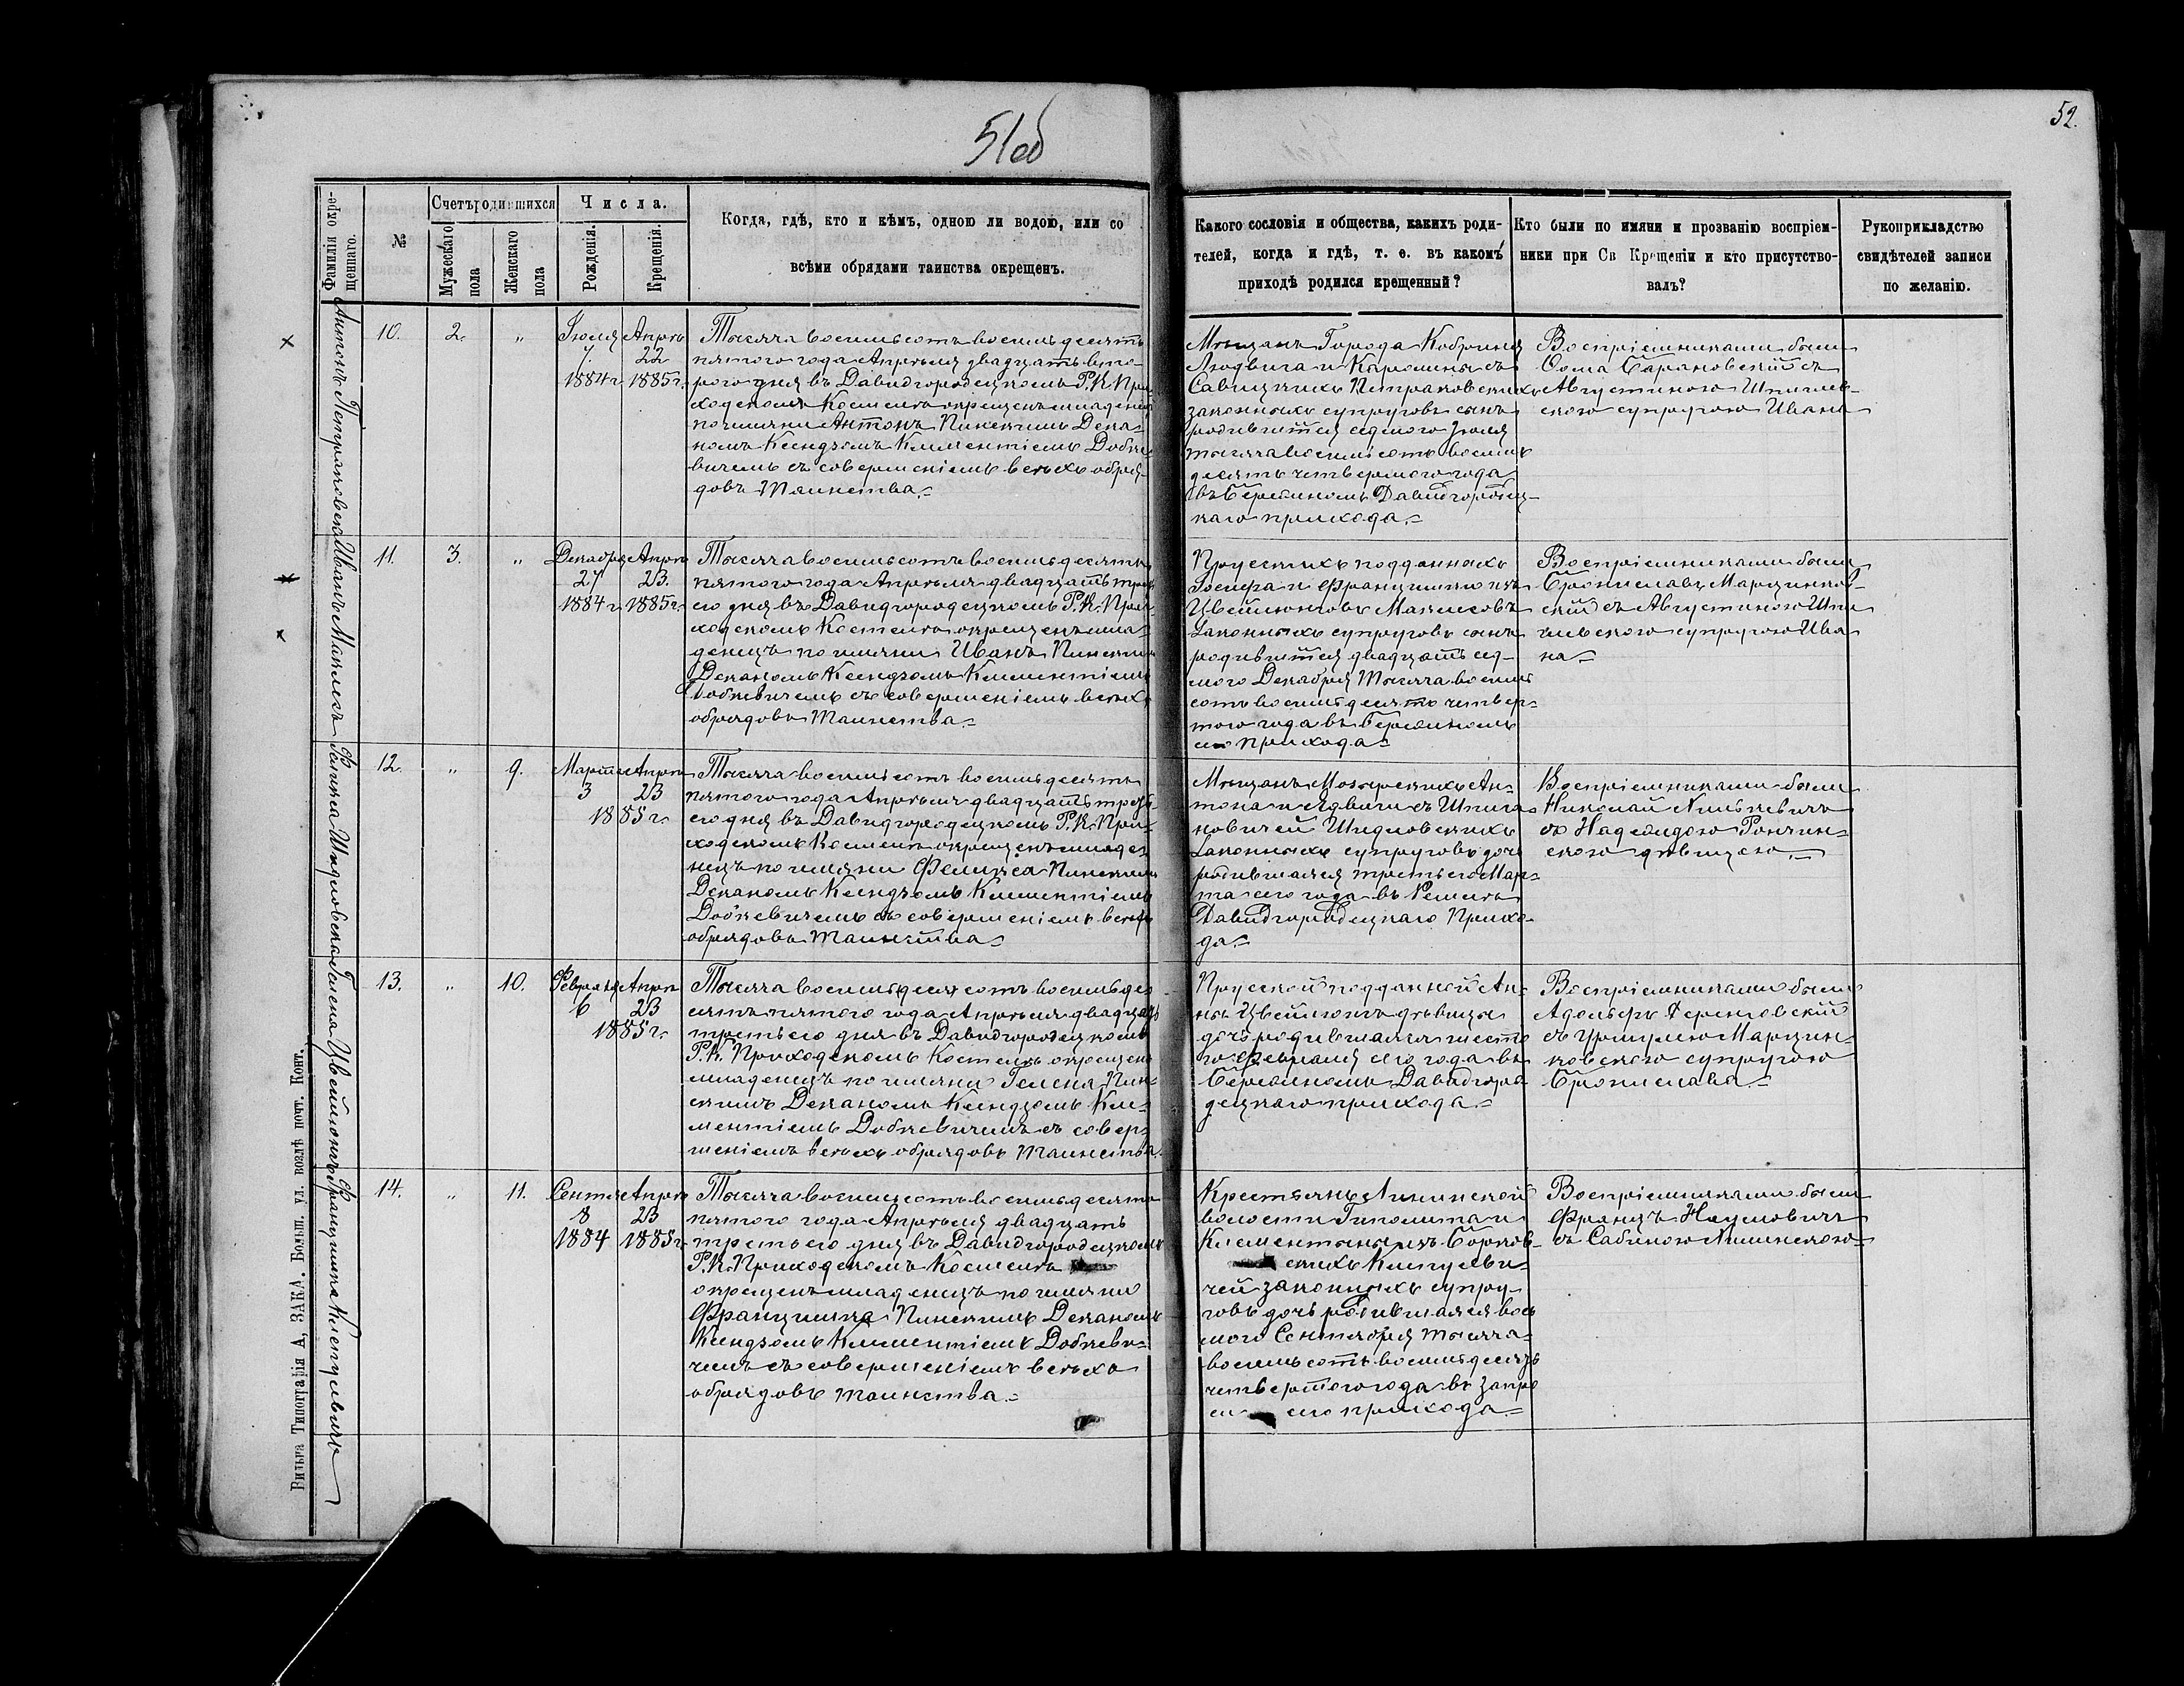 51об
52.
Фамилія окрещеннаго.
№
Счетъ родившихся
Мужескаго пола
Женскаго пола
Числа.
Рожденія.
Крещенія.
Когда, гдѣ, кто и кѣмъ, одною ли водою, или со
всѣми обрядами таинства окрещенъ.
Какого сословія и общества, какихъ роди-
телей, когда и гдѣ, т. е. въ какомъ
приходѣ родился крещенный?
Кто были по имяни и прозванію воспріем-
ники при Св Крещеніи и кто присутство-
валъ?
Рукоприкладство
свидѣтелей записи
по желанію.
Антонъ Петраковскій
10.
2.
"
Іюля Апрѣль
7. 22
1884 г. 1885 г.
Тысяча восемьсотъ восемьдесятъ
пятого года Апрѣля двадцать вто-
рого дня въ Давидгородецкомъ Р. К. При-
ходскомъ Костелѣ окрещенъ младенецъ
по имяни Антонъ Пинскимъ Дека-
номъ Ксендзомъ Климентіемъ Добке-
вичемъ съ совершеніемъ всѣхъ обря-
довъ Таинства.
Мѣщанъ Города Кобриня
Людвига и Каролины съ
Савицкихъ Петраковскихъ
законныхъ супруговъ сынъ
родившійся седмого Іюля
тысяча восемьсотъ восемь
десятъ четвертого года
въ Бережномъ Давидгородец-
каго прихода.
Воспріемниками были
Фома Барановскій съ
Августиною
скою супругою Ивана
Иванъ Маклесъ
11.
3.
"
Декабря Апрѣль
27 23.
1884 г. 1885 г.
Тысяча восемьсотъ восемьдесятъ
пятого года Апрѣля двадцать треть-
его дня въ Давидгородецкомъ Р. К. При-
ходскомъ Костелѣ окрещенъ мла-
денецъ по имяни Иванъ Пинскимъ
Деканомъ Ксендзомъ Климентіемъ
Добкевичемъ съ совершеніемъ всѣхъ
обрядовъ Таинства.
Прусскихъ подданныхъ
Іосифа и Францишки изъ
Цвейгонговъ Маклесовъ
Законныхъ супруговъ сынъ
родившійся двадцать сед-
мого Декабря Тысяча восемь
сотъ восемьдесятъ четвер-
того года въ Бережномъ
сего прихода.
Воспріемниками были
Брониславъ Марцинков-
скій съ Августиною
супругою Ива
на
Фелиція Шидловская
12.
"
9.
Марта Апрѣль
3 23
1885 г.
Тысяча восемьсотъ восемьдесятъ
пятого года Апрѣля двадцать треть-
его дня въ Давидгородецкомъ Р. К. При-
ходскомъ Костелѣ окрещенъ младе-
нецъ по имяни Пинскимъ
Деканомъ Ксендзомъ Климентіемъ
Добкевичемъ съ совершеніемъ всѣхъ
обрядовъ Таинства
Мѣщанъ Мозырскихъ Ан-
тона и Ядвиги съ
Шидловскихъ
Законныхъ супруговъ дочь
родившаяся третьего Мар-
та сего года въ
Давидгородецкаго Прихо-
да.
Воспріемниками были
Николай
съ Надеждою
скою дѣвицею.
Гелена Цвейгонгъ
13.
"
10.
Февраля Апрѣль
6 23
1885 г.
Тысяча восемьдесятсотъ восемьде-
сятъ пятого года Апрѣля двадцать
третьего дня въ Давидгородецкомъ
Р. К. Приходскомъ Костелѣ окрещенъ
младенецъ по имяни Гелена Пин-
скимъ Деканомъ Ксендзомъ Кли-
ментіемъ Добкевичемъ съ совер-
шеніемъ всѣхъ обрядовъ Таинства.
Прусской подданной Ан-
ны Цвейгонгъ дѣвицы
дочь родившаяся шесто
го Февраля сего года въ
Бережномъ Давидгоро
децкаго прихода.
Воспріемниками были
Адольфъ
съ Уршулею Марцин-
ковскою супругою
Бронислава
Францишка Клепцевичъ
14.
"
11.
Сентяб Апрѣль
8 23
1884 1885 г.
Тысяча восемьсотъ восемьдесятъ
пятого года Апрѣля двадцать
третьего дня въ Давидгородецкомъ
Р. К. Приходскомъ Костелѣ
окрещенъ младенецъ по имяни
Францишка Пинскимъ Деканомъ
Ксендзомъ Климентіемъ Добкеви-
чемъ съ совершеніемъ всѣхъ
обрядовъ таинства.
Крестьянъ
волости Гиполита и
Клементины изъ Борков-
скихъ
чей законныхъ супру-
говъ дочь родившаяся вось
мого Сентября тысяча
восемьсотъ восемьдесятъ
четвертого года въ
сего прихода.
Воспріемниками были
Францъ Наумовичъ
съ Сабиною
Вильна Типографія А, ЗАКА. Больш. ул. возлѣ почт. Конт.